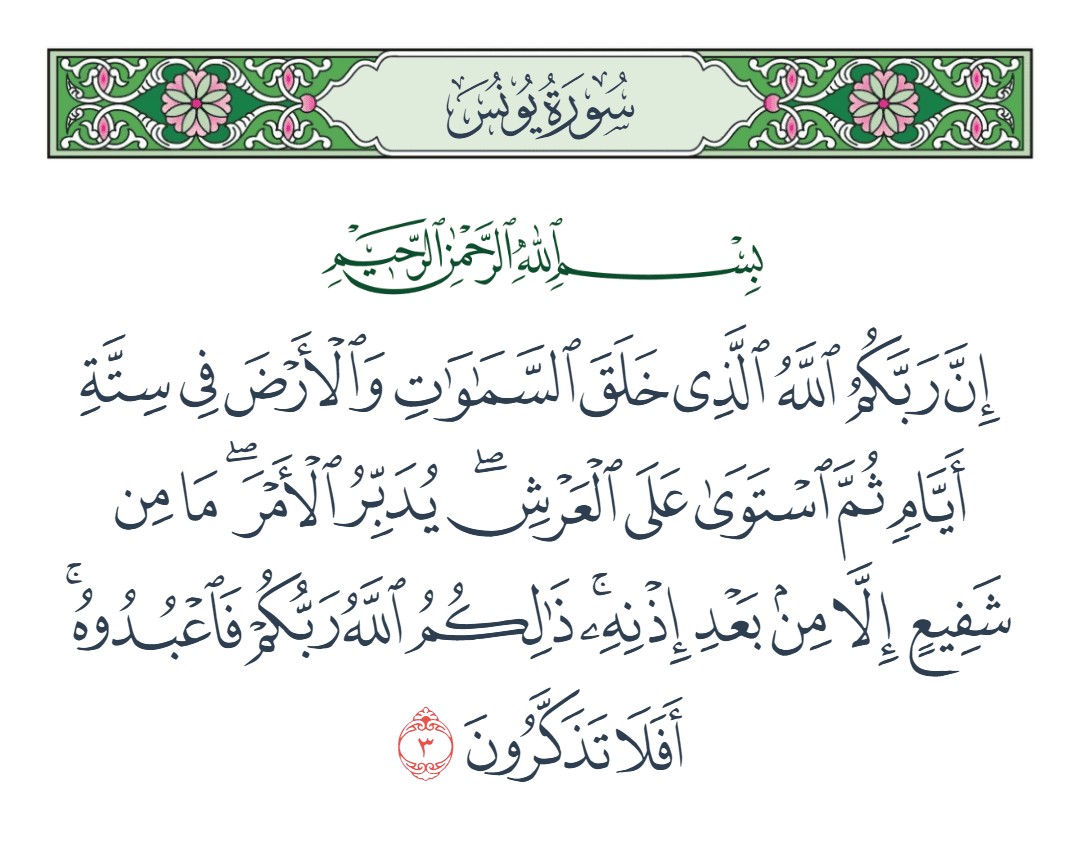 سُورَةُ يُونُسَ
بِسْمِ ٱللَّهِ ٱلرَّحْمَٰنِ ٱلرَّحِيمِ
إِنَّ رَبَّكُمُ ٱللَّهُ ٱلَّذِى خَلَقَ ٱلسَّمَـٰوَٰتِ وَٱلْأَرْضَ فِى سِتَّةِ
أَيَّامٍ ثُمَّ ٱسْتَوَىٰ عَلَى ٱلْعَرْشِ ۖ يُدَبِّرُ ٱلْأَمْرَ ۖ مَا مِن
شَفِيعٍ إِلَّا مِنۢ بَعْدِ إِذْنِهِۦ ۚ ذَٰلِكُمُ ٱللَّهُ رَبُّكُمْ فَٱعْبُدُوهُ ۚ
أَفَلَا تَذَكَّرُونَ ٣